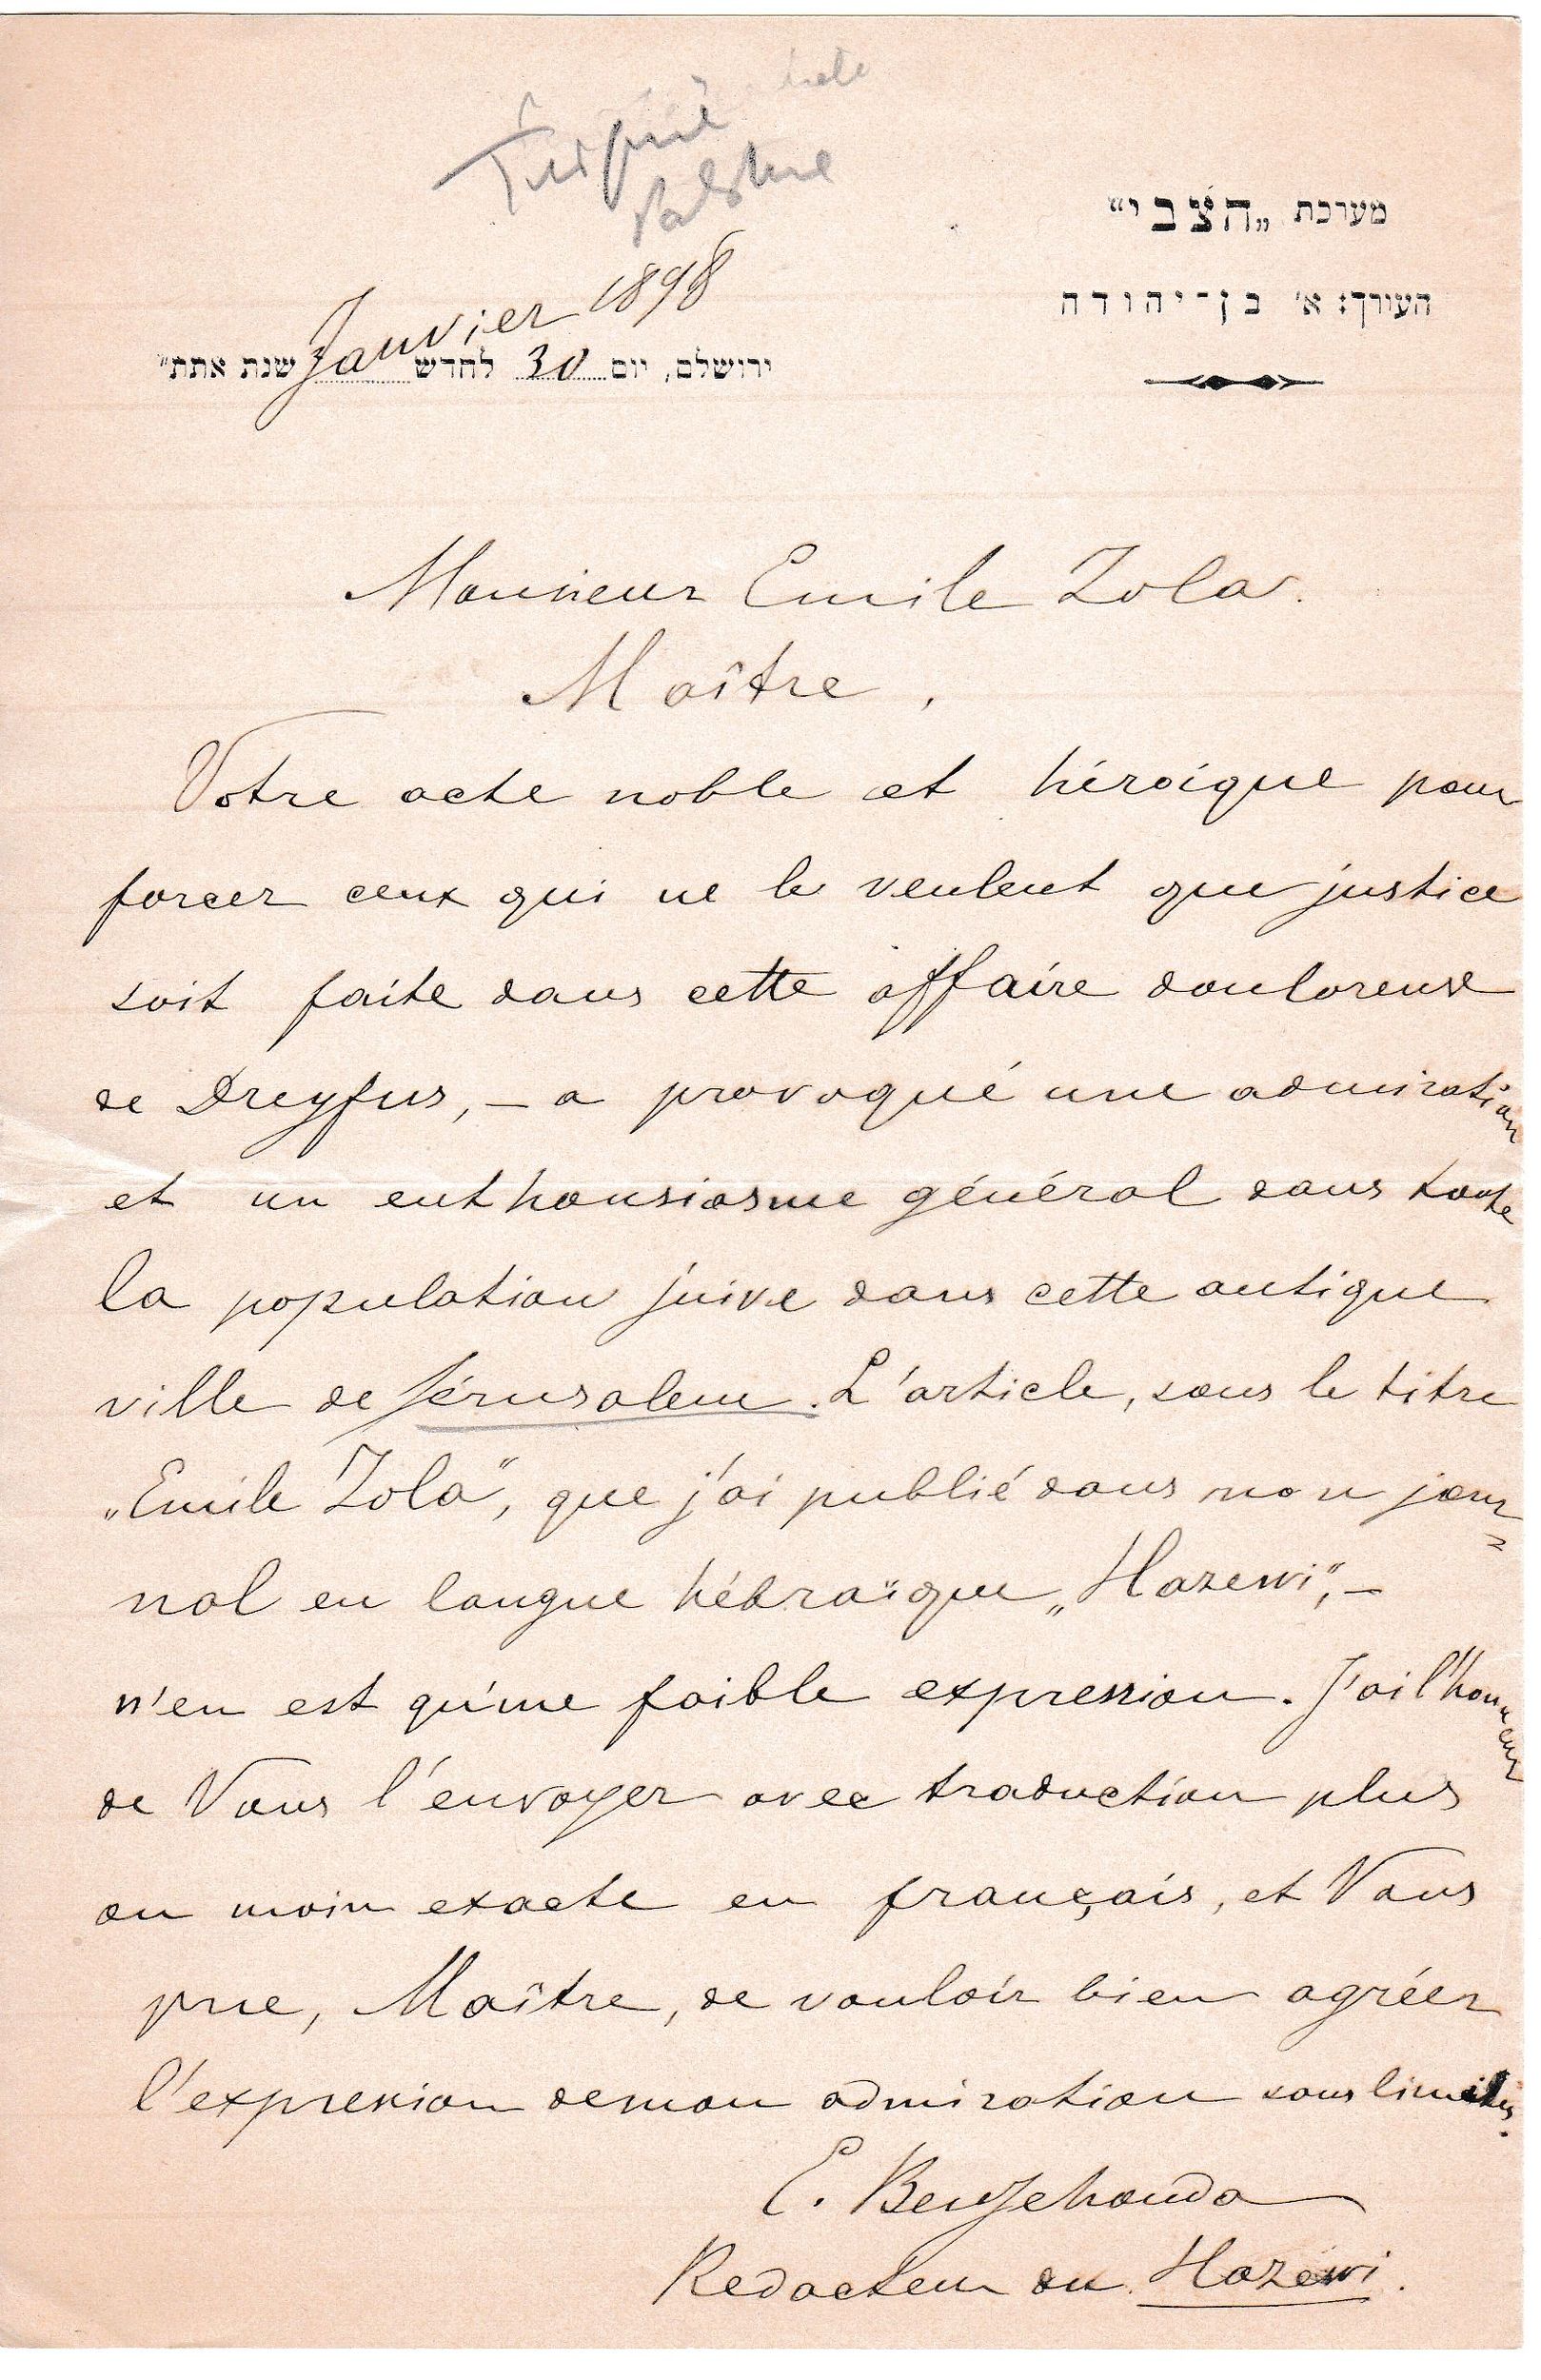 Turquie
Palestine
מערכת „הצבי“
העורך: א׳ בן־יהודה
ירושלם, יום 30 לחדש Janvier 1898 שנת אתת״
Monsieur Emile Zola.
Maître,
Votre acte noble et héroique pour
forcer ceux qui ne le veulent que justice
soit faite dans cette affaire douloreuse
de Dreyfus, – a provoqué une admiration
et un enthousiasme général dans toute
la population juive dans cette antique
ville de Jérusalem. L'article, sous le titre
„Emile Zola“, que j'ai publié dans mon jour=
nal en langue hébraïque „Hazewi“, –
n'en est qu'une faible expression. J'ai l'honneur
de Vous l'envoyer avec traduction plus
ou moin exacte en français, et Vous
prie, Maître, de vouloir bien agréer
l'expression de mon admiration sans limites.
E. Ben Jehouda
Redacteur du Hazewi.